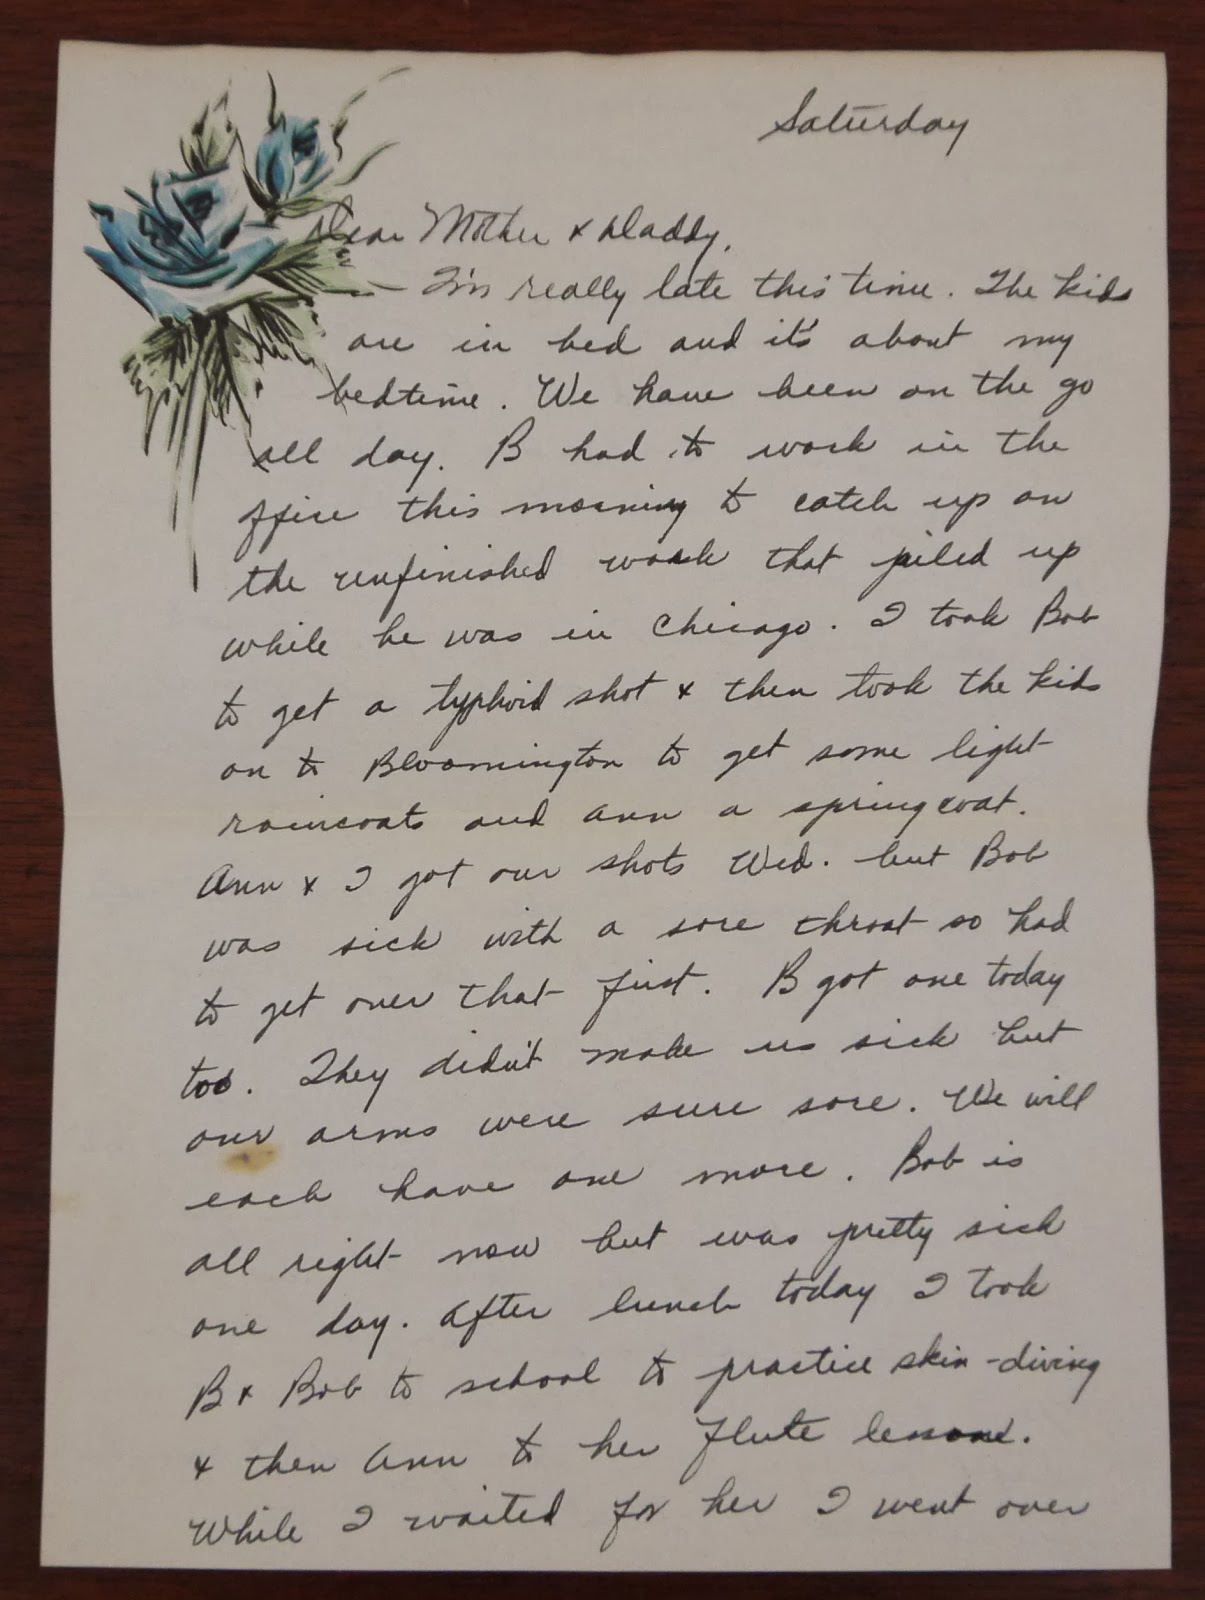 Saturday
Dear Mother & Daddy,
— I'm really late this time. The kids
are in bed and it's about my
bedtime. We have been on the go
all day. B had to work in the
office this morning to catch up on
the unfinished work that piled up
while he was in Chicago. I took Bob
to get a typhoid shot & then took the kids
on to Bloomington to get some light
raincoats and Ann a spring coat.
Ann & I got our shots Wed. but Bob
was sick with a sore throat so had
to get over that first. B got one today
too. They didn't make us sick but
our arms were sure sore. We will
each have one more. Bob is
all right now but was pretty sick
one day. After lunch today I took
B & Bob to school to practice skin-diving
& then Ann to her flute lesson.
While I waited for her I went over